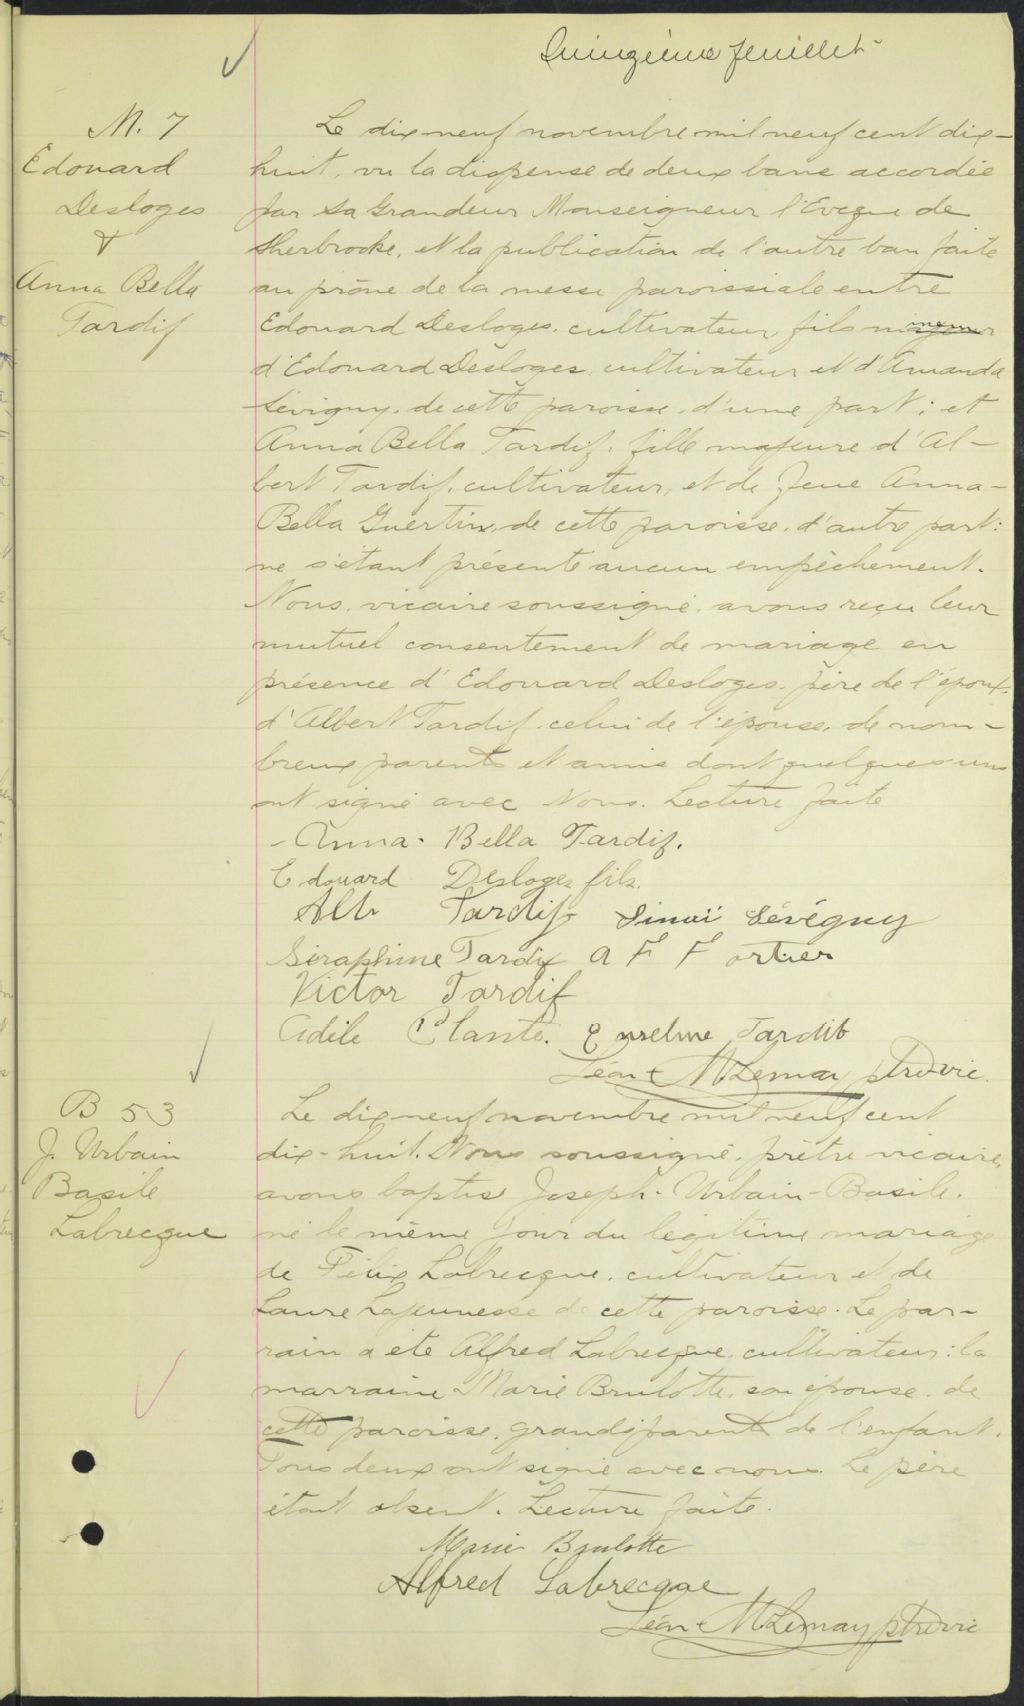 Quinzième feuillet
M. 7
Edouard
Desloges
&
Anna Bella
Tardif
Le dix-neuf novembre mil neuf cent dix-
huit, vu la dispense de deux bans accordée
par Sa Grandeur Monseigneur l'Evêque de
Sherbrooke, et la publication de l'autre ban faite
au prône de la messe paroissiale entre
Edouard Desloges, cultivateur, fils mineur
d'Edouard Desloges, cultivateur et d'Amanda
Sévigny, de cette paroisse, d'une part; et
Anna Bella Tardif, fille majeure d'Al-
bert Tardif, cultivateur, et de feue Anna-
Bella Guertin, de cette paroisse, d'autre part:
ne s'étant présenté aucun empêchement.
Nous, vicaire soussigné, avons reçu leur
mutuel consentement de mariage en
présence d'Edouard Desloges, père de l'époux,
d'Albert Tardif, celui de l'épouse, de nom-
breux parents et amis dont quelques uns
ont signé avec Nous. Lecture faite
- Anna- Bella Tardif.
Edouard Desloges fils.
Alb Tardif Sinaï Sévégny
Séraphine Tardif A F Fortier
Victor Tardif
Adèle Plante. Enselme Tardif
Léon M Lemay ptre vic.
B 53
J. Urbain
Basile
Labrecque
Le dix-neuf novembre mil neuf cent
dix-huit, Nous soussigné, prêtre vicaire,
avons baptisé Joseph-Urbain-Basile,
né le même jour du légitime mariage
de Félix Labrecque, cultivateur et de
Laure Lajeunesse de cette paroisse. Le par-
rain a été Alfred Labrecque, cultivateur: la
marraine Marie Brulotte, son épouse, de
cette paroisse, grandsparents de l'enfant.
Tous deux ont signé avec nous. Le père
étant absent. Lecture faite.
Marie Brulotte
Alfred Labrecque
Léon M Lemay ptre vic